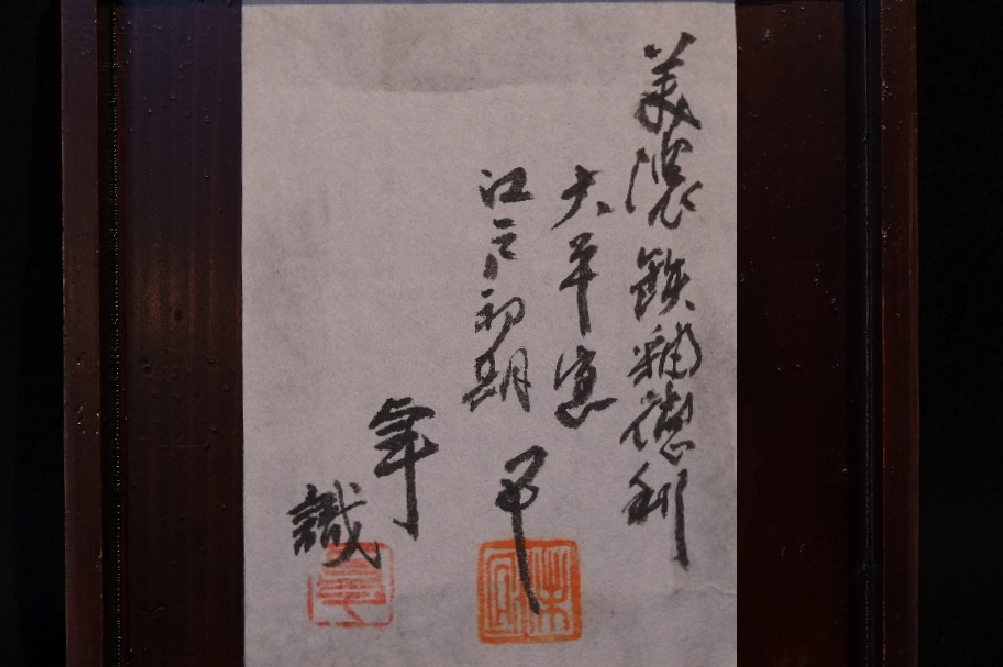 美濃鉄釉徳利
大平窯
江戸初期
識